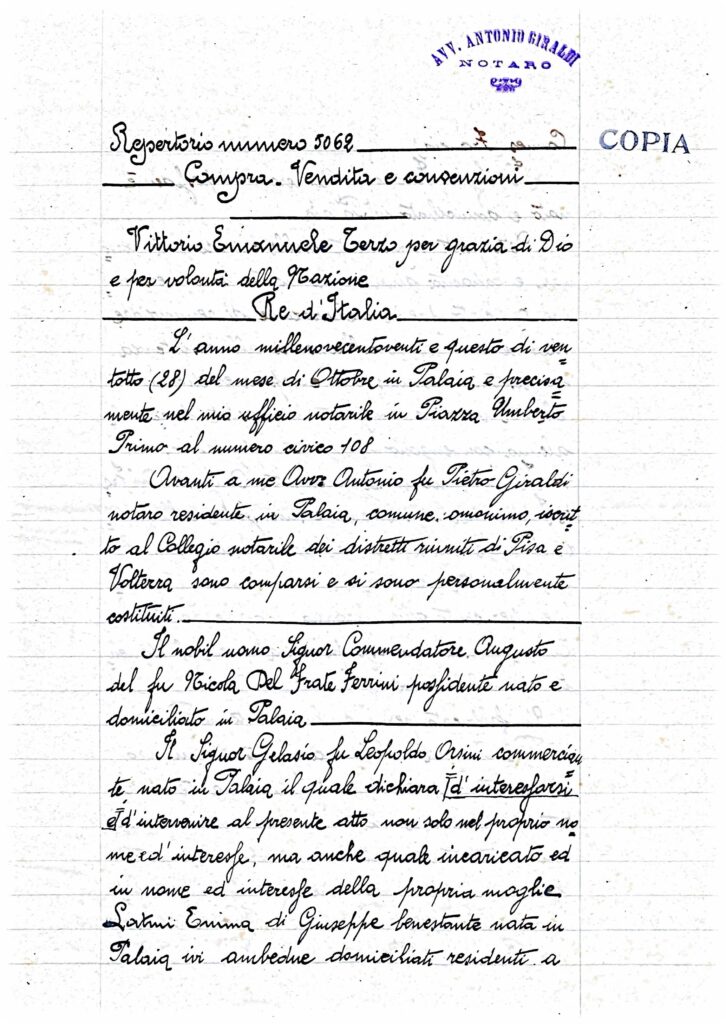 AVV. ANTONIO GIRALDI
NOTARO
COPIA
Repertorio numero 5062
Compra-Vendita e convenzioni
Vittorio Emanuele Terzo per grazia di Dio
e per volontà della Nazione
Re d'Italia
L'anno millenovecentoventi e questo dì ven=
totto (28) del mese di Ottobre in Palaia e precisa=
mente nel mio ufficio notarile in Piazza Umberto
Primo al numero civico 108
Avanti a me Avv. Antonio fu Pietro Giraldi
notaro residente in Palaia, comune omonimo, iscrit=
to al Collegio notarile dei distretti riuniti di Pisa e
Volterra sono comparsi e si sono personalmente
costituiti.
Il nobil uomo Signor Commendatore Augusto
del fu Nicola Del Frate Ferrini possidente nato e
domiciliato in Palaia
Il Signor Gelasio fu Leopoldo Orsini commercian=
te nato in Palaia il quale dichiara d'interessarsi
e d'intervenire al presente atto non solo nel proprio no=
me ed'interesse, ma anche quale incaricato ed
in nome ed interesse della propria moglie
Emma di Giuseppe benestante nata in
Palaia ivi ambedue domiciliati residenti a